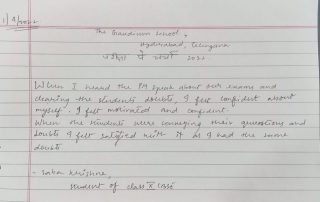 1/4/2022
The Gaudium School,
Hyderabad, Telangana
परीक्षा पे चर्चा 2022
When I heard the PM speak about our exams and
clearing the students doubts, I felt confident about
myself. I felt motivated and confident.
When the students were conveying their questions and
doubts I felt satisfied with it as I had the same
doubts
Krishna
Student of class X CBSE